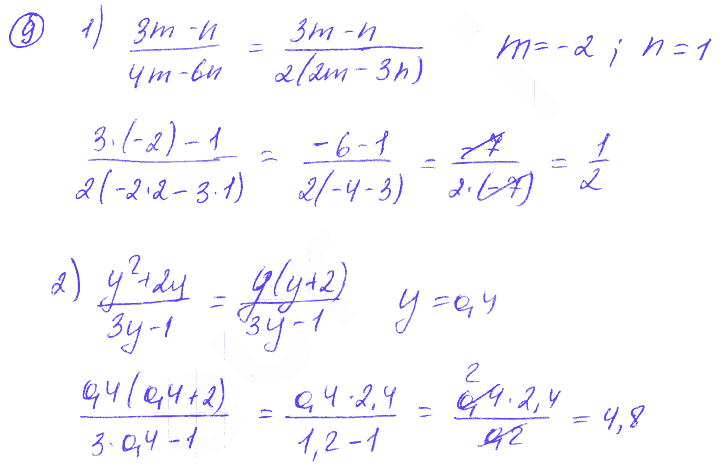 9 1) (3m - n)/(4m - 6n) = (3m - n)/(2(2m - 3n)) m = -2 ; n = 1
(3·(-2) - 1)/(2(-2·2 - 3·1)) = (-6 - 1)/(2(-4 - 3)) = (-7)/(2·(-7)) = 1/2
2) (y² + 2y)/(3y - 1) = (y(y + 2))/(3y - 1) y = 0,4
(0,4(0,4 + 2))/(3·0,4 - 1) = (0,4·2,4)/(1,2 - 1) = (2 0,4·2,4)/(0,2) = 4,8